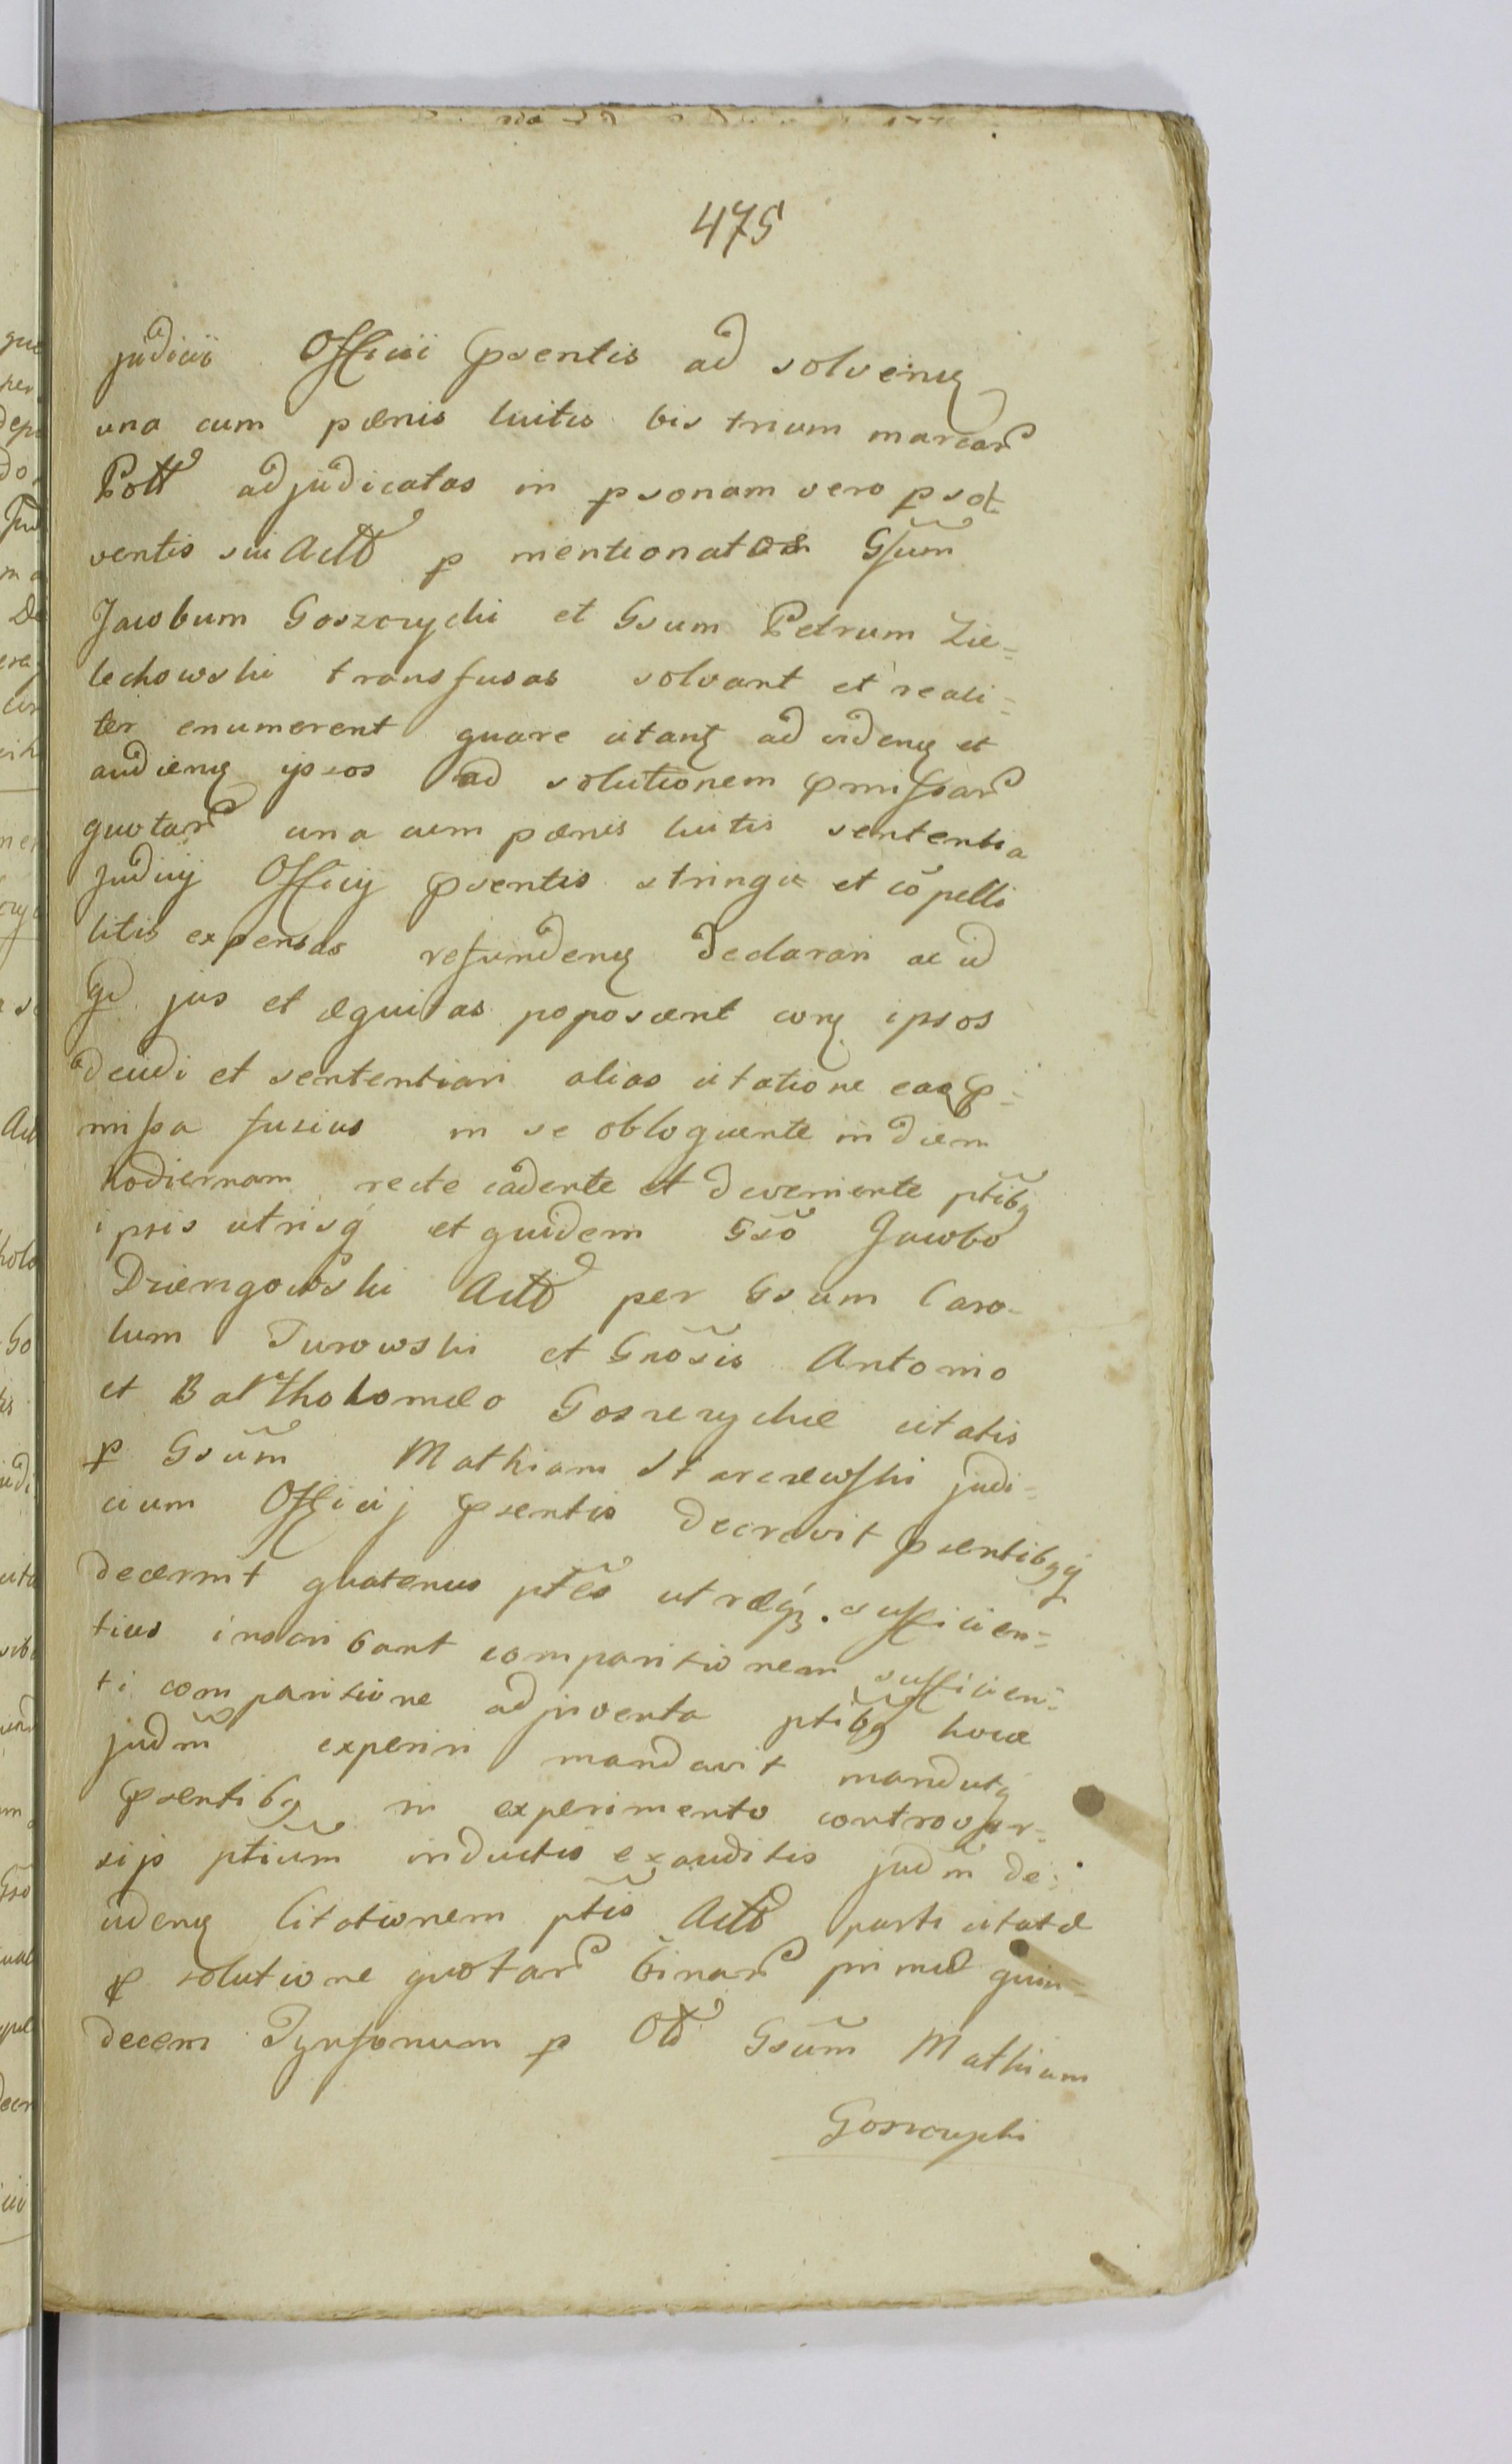 475
judicii Officii pſentis ad solvenꝝ
una cum pænis luitis bis trium marcarũ
Poltt adjudicatas in psonam vero psol
ventis sui Actt p mentionatos Gsum̃
Jacobum Goszczycki et Gsum Petrum Zie=
lechowski transfusas solvant et reali=
ter enumerent quare citant ad videnꝝ et
audienꝝ ipsos ad solutionem pmissarũ
quotarũ una cum pænis luitis sententia
Judicij Officij psentis stringi et cõpelli
litis expensas refundenꝝ declarari ac id
qd jus et æquitas poposcerit corꝝ ipsos
decidi et sententiari alias citatione ea p=
missa fusius in se obloquente in diem
hodiernam recte cadente et deveniente ptibꝫ
ipsis utrisq et quidem Gsõ Jacobo
Dziengowski Actt per Gsum Caro-
lum Turowski et Gnõsis Antonio
et Bartholomæo Goszczyckie citatis
p Gsum̃ Mathiam Starczewski judi=
cium Officij psentis decrevit psentibꝫq
decernit quatenus ptẽs utræq. sufficien=
tius inscribant comparitionem sufficien=
ti comparitione adjnventa ptibꝫ hocce
judm̃ experiri mandavit mandatq
psentibꝫ in experimento controver=
sijs ptium̃ inductis exauditis judm̃ de=
cidenꝝ Citationem ptĩs Actt parti citatæ
p solutione quotarũ binarũ primæ quin=
decem Tynfonum p Ott Gsum̃ Mathiam
Goszczycki